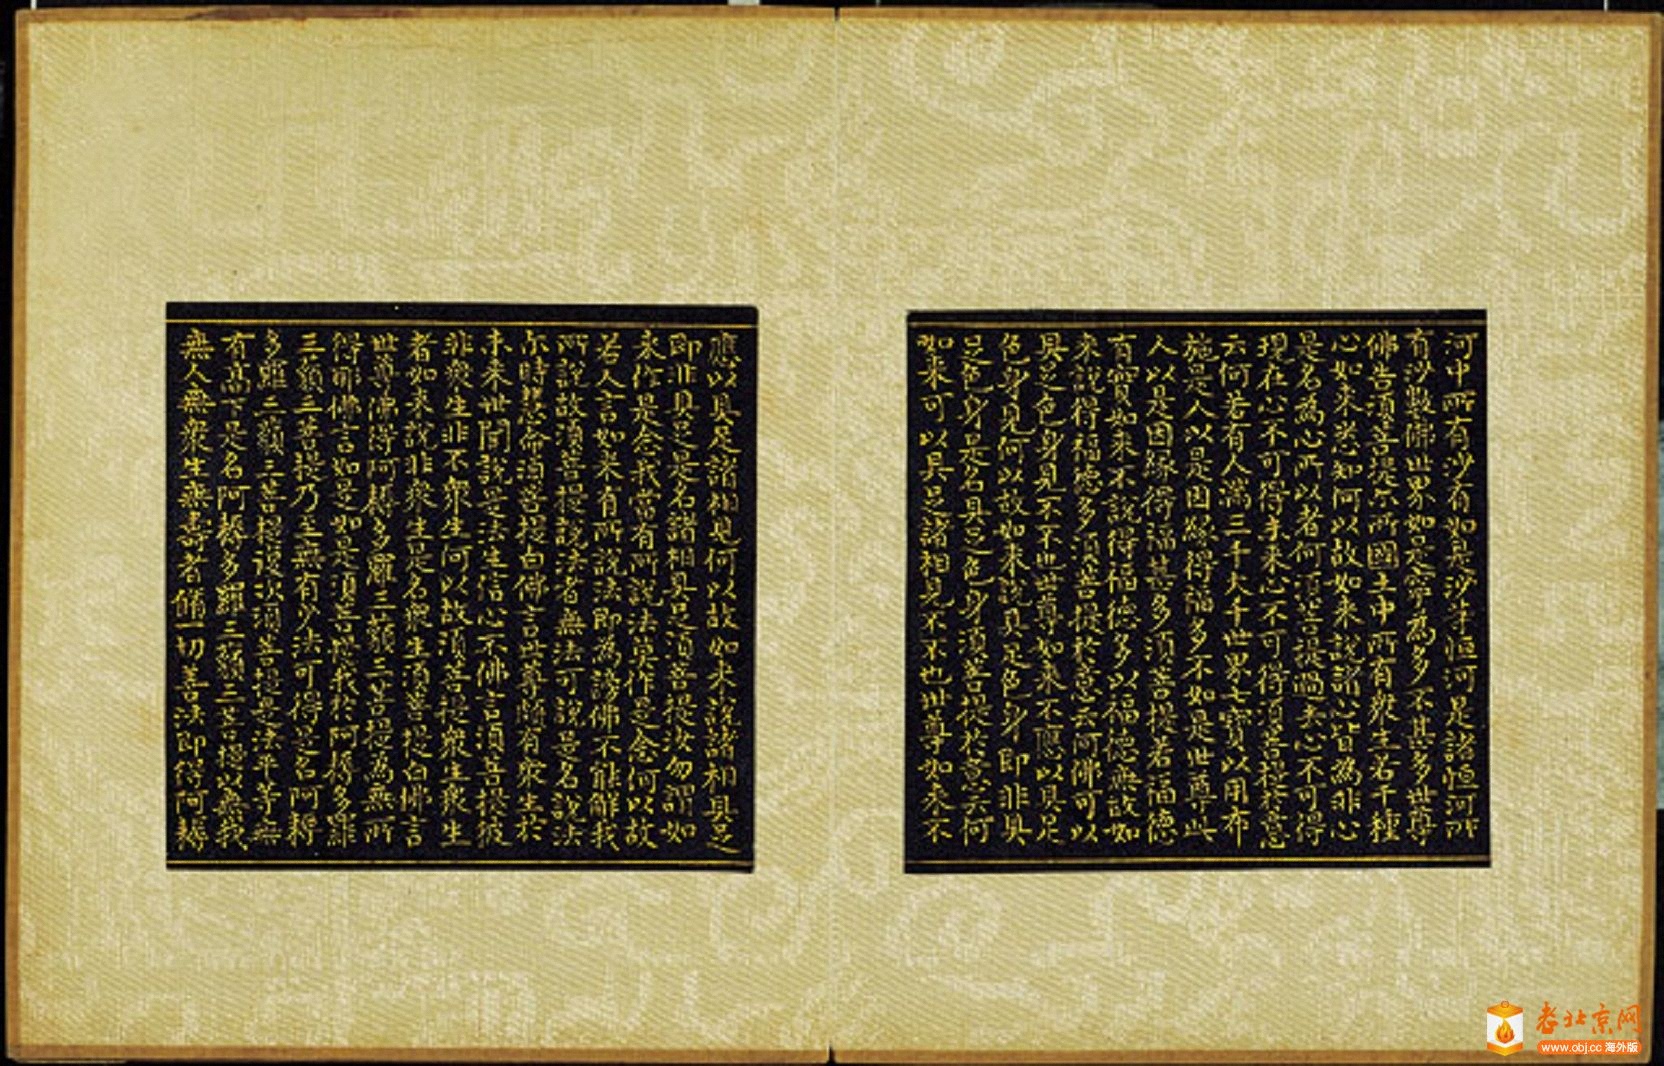 河中所有沙有如是沙等恒河是諸恒河所
有沙數佛世界如是寧為多不甚多世尊
佛告須菩提尓所國土中所有衆生若干種
心如來悉知何以故如來說諸心皆為非心
是名為心所以者何須菩提過去心不可得
現在心不可得未來心不可得須菩提於意
云何若有人滿三千大千世界七寶以用布
施是人以是因緣得福多不如是世尊此
人以是因緣得福甚多須菩提若福德
有實如來不說得福德多以福德無故如
來說得福德多須菩提於意云何佛可以
具足色身見不不也世尊如來不應以具足
色身見何以故如來說具足色身即非具
足色身是名具足色身須菩提於意云何
如來可以具足諸相見不不也世尊如來不
應以具足諸相見何以故如來說諸相具足
即非具足是名諸相具足須菩提汝勿謂如
來作是念我當有所說法莫作是念何以故
若人言如來有所說法即為謗佛不能解我
所說故須菩提說法者無法可說是名說法
尓時慧命須菩提白佛言世尊頗有衆生於
未來世聞說是法生信心不佛言須菩提彼
非衆生非不衆生何以故須菩提衆生衆生
者如來說非衆生是名衆生須菩提白佛言
世尊佛得阿耨多羅三藐三菩提為無所
得耶佛言如是如是須菩提我於阿耨多羅
三藐三菩提乃至無有少法可得是名阿耨
多羅三藐三菩提復次須菩提是法平等無
有高下是名阿耨多羅三藐三菩提以無我
無人無衆生無壽者脩一切善法即得阿耨
老北京网
www.obj.cc 海外版